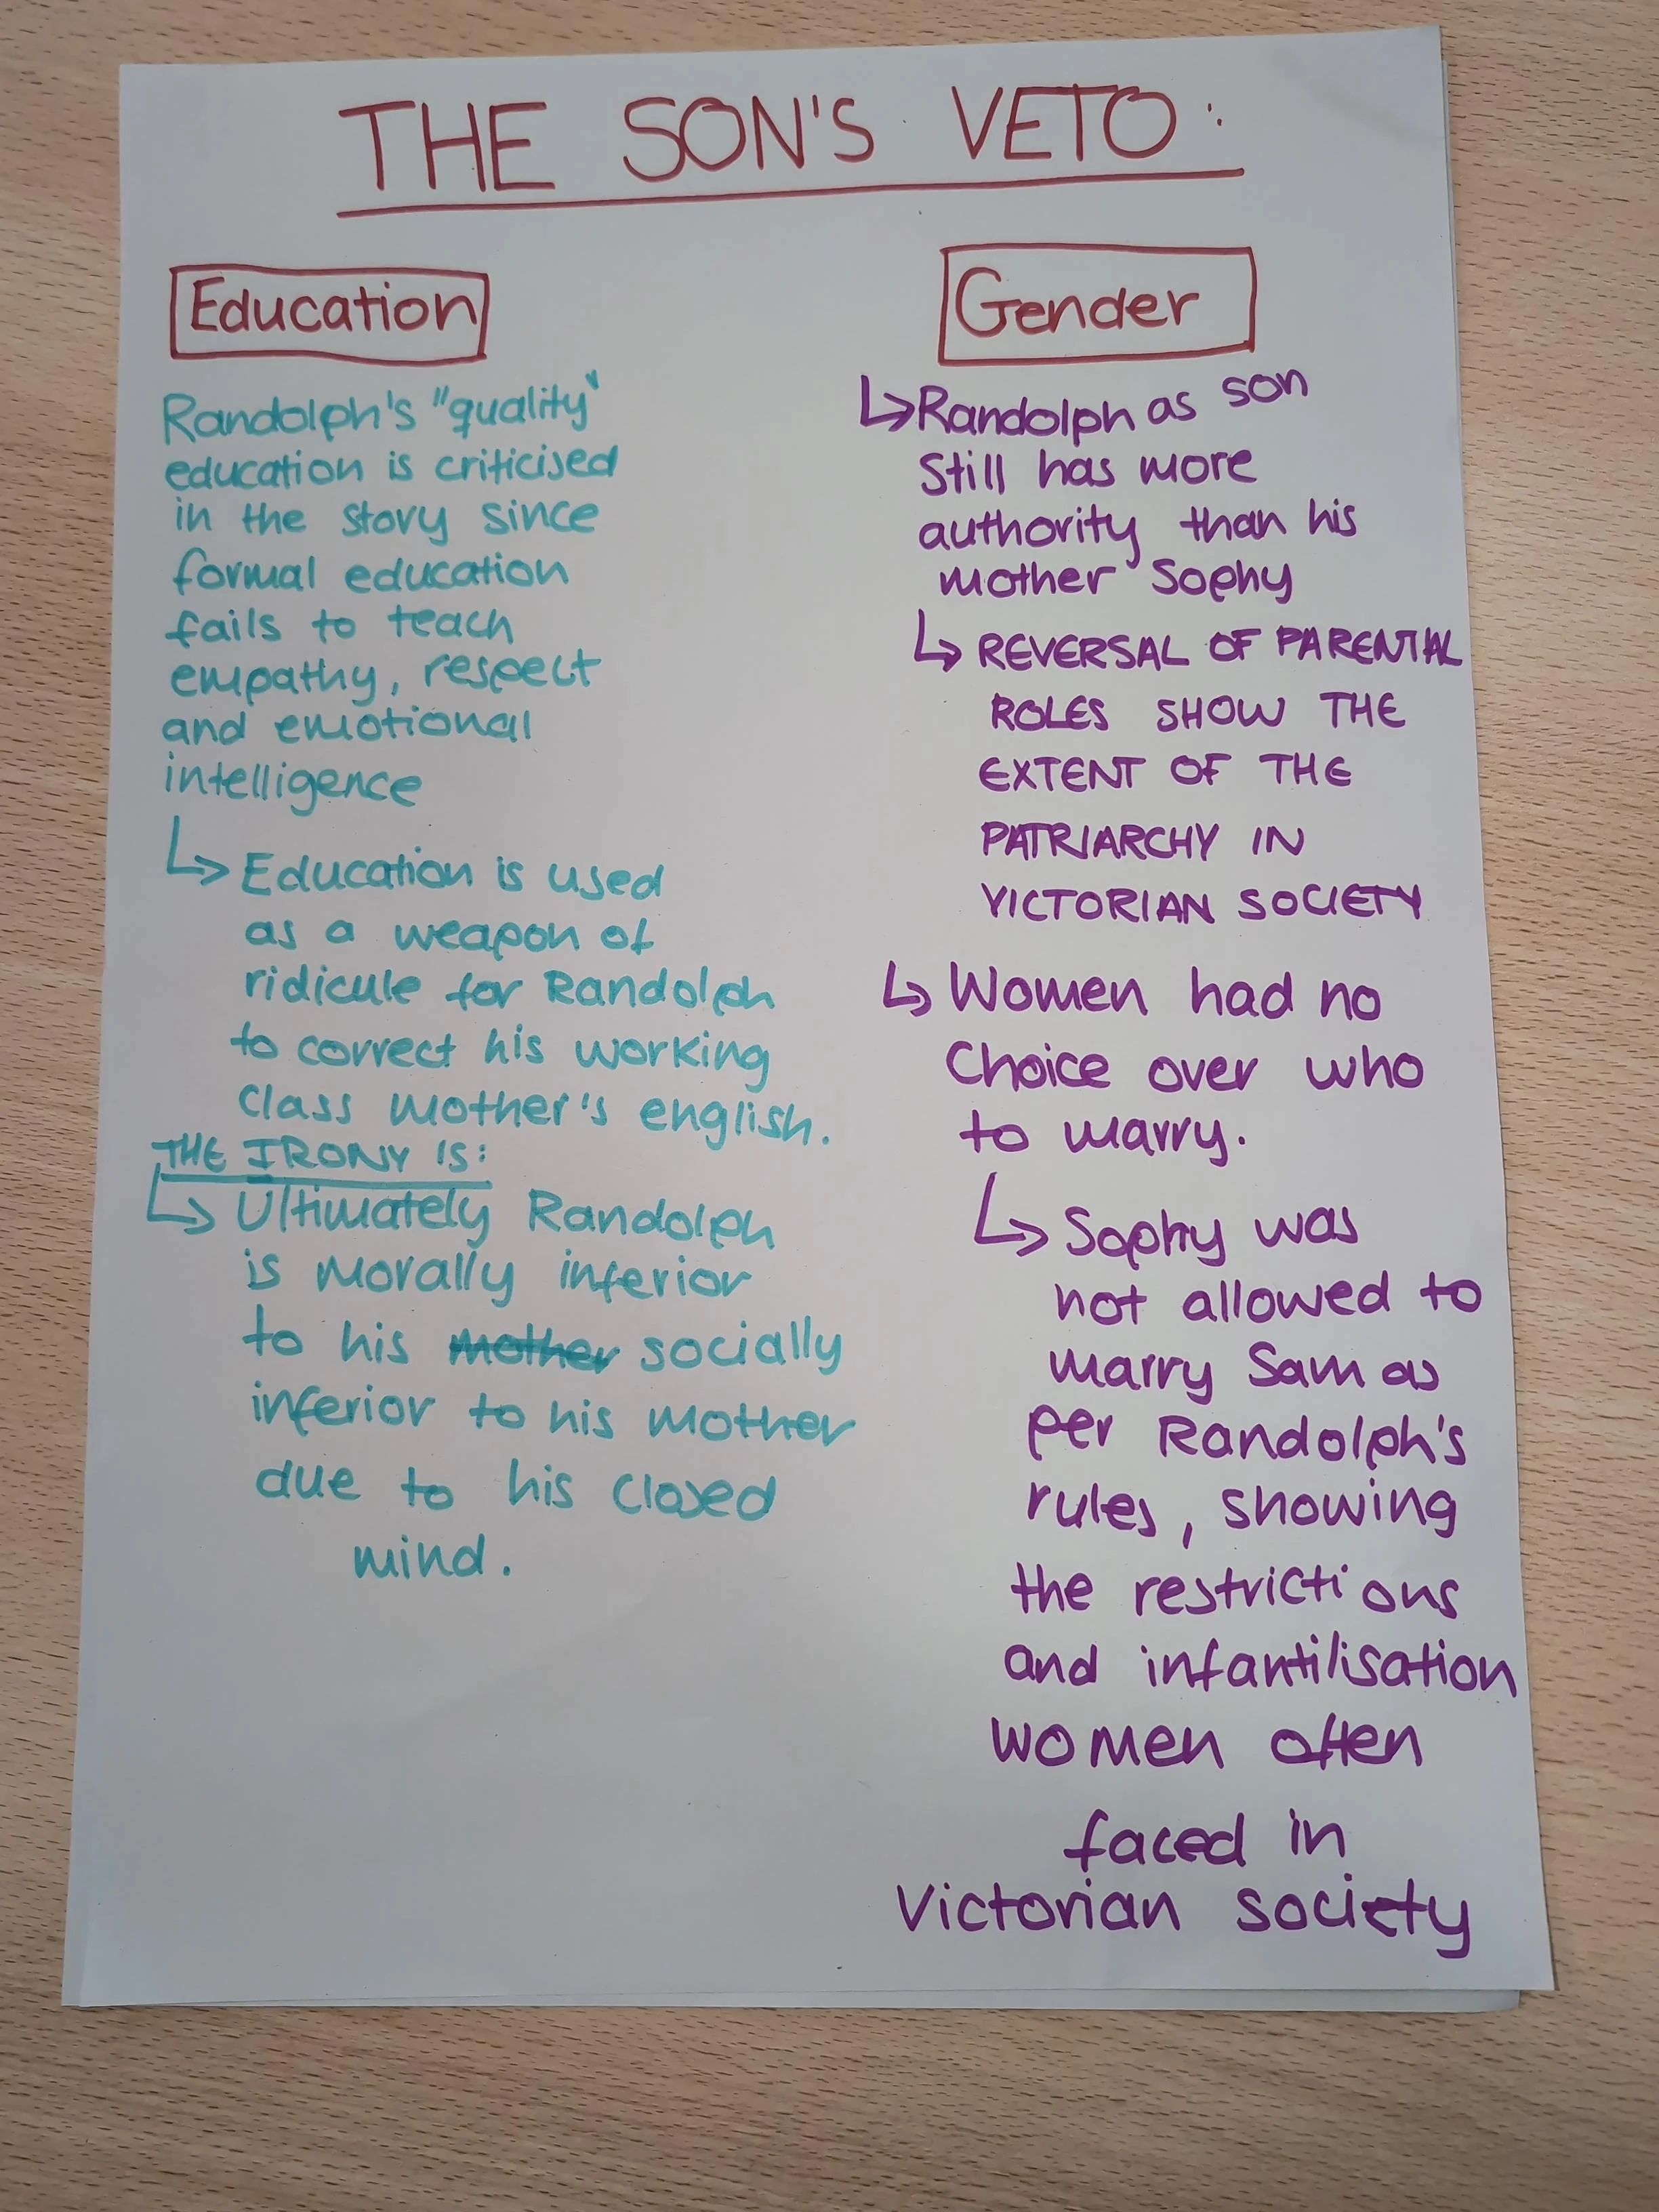 THE SON'S VETO:
Education
Randolph's "quality"
education is criticised
in the story since
formal education
fails to teach
empathy, respect
and emotional
intelligence
↳ Education is used
as a weapon of
ridicule for Randolph
to correct his working
class mother's english.
THE IRONY IS:
↳ Ultimately Randolph
is morally inferior
to his mother socially
inferior to his mother
due to his closed
mind.
Gender
↳ Randolph as son
still has more
authority than his
mother Sophy
↳ REVERSAL OF PARENTAL
ROLES SHOW THE
EXTENT OF THE
PATRIARCHY IN
VICTORIAN SOCIETY
↳ Women had no
choice over who
to marry.
↳ Sophy was
not allowed to
marry Sam as
per Randolph's
rules, showing
the restrictions
and infantilisation
women often
faced in
Victorian society